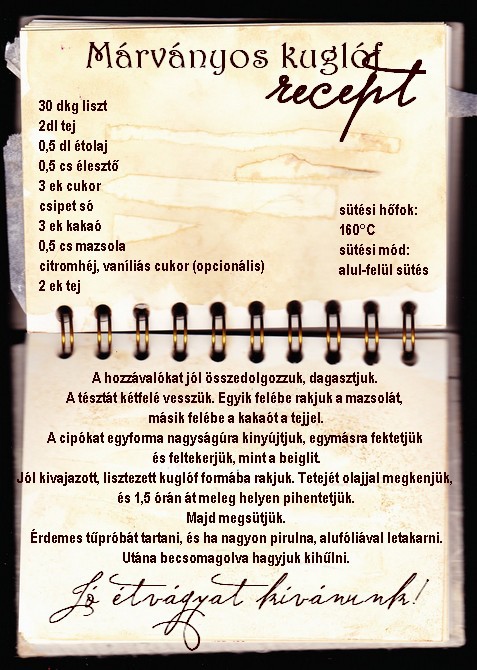 Márványos kuglóf
recept
30 dkg liszt
2dl tej
0,5 dl étolaj
0,5 cs élesztő
3 ek cukor
csipet só
3 ek kakaó
0,5 cs mazsola
citromhéj, vaníliás cukor (opcionális)
2 ek tej
sütési hőfok:
160°C
sütési mód:
alul-felül sütés
A hozzávalókat jól összedolgozzuk, dagasztjuk.
A tésztát kétfelé vesszük. Egyik felébe rakjuk a mazsolát,
másik felébe a kakaót a tejjel.
A cipókat egyforma nagyságúra kinyújtjuk, egymásra fektetjük
és feltekerjük, mint a beiglit.
Jól kivajazott, lisztezett kuglóf formába rakjuk. Tetejét olajjal megkenjük,
és 1,5 órán át meleg helyen pihentetjük.
Majd megsütjük.
Érdemes tűpróbát tartani, és ha nagyon pirulna, alufóliával letakarni.
Utána becsomagolva hagyjuk kihűlni.
Jó étvágyat kívánunk!